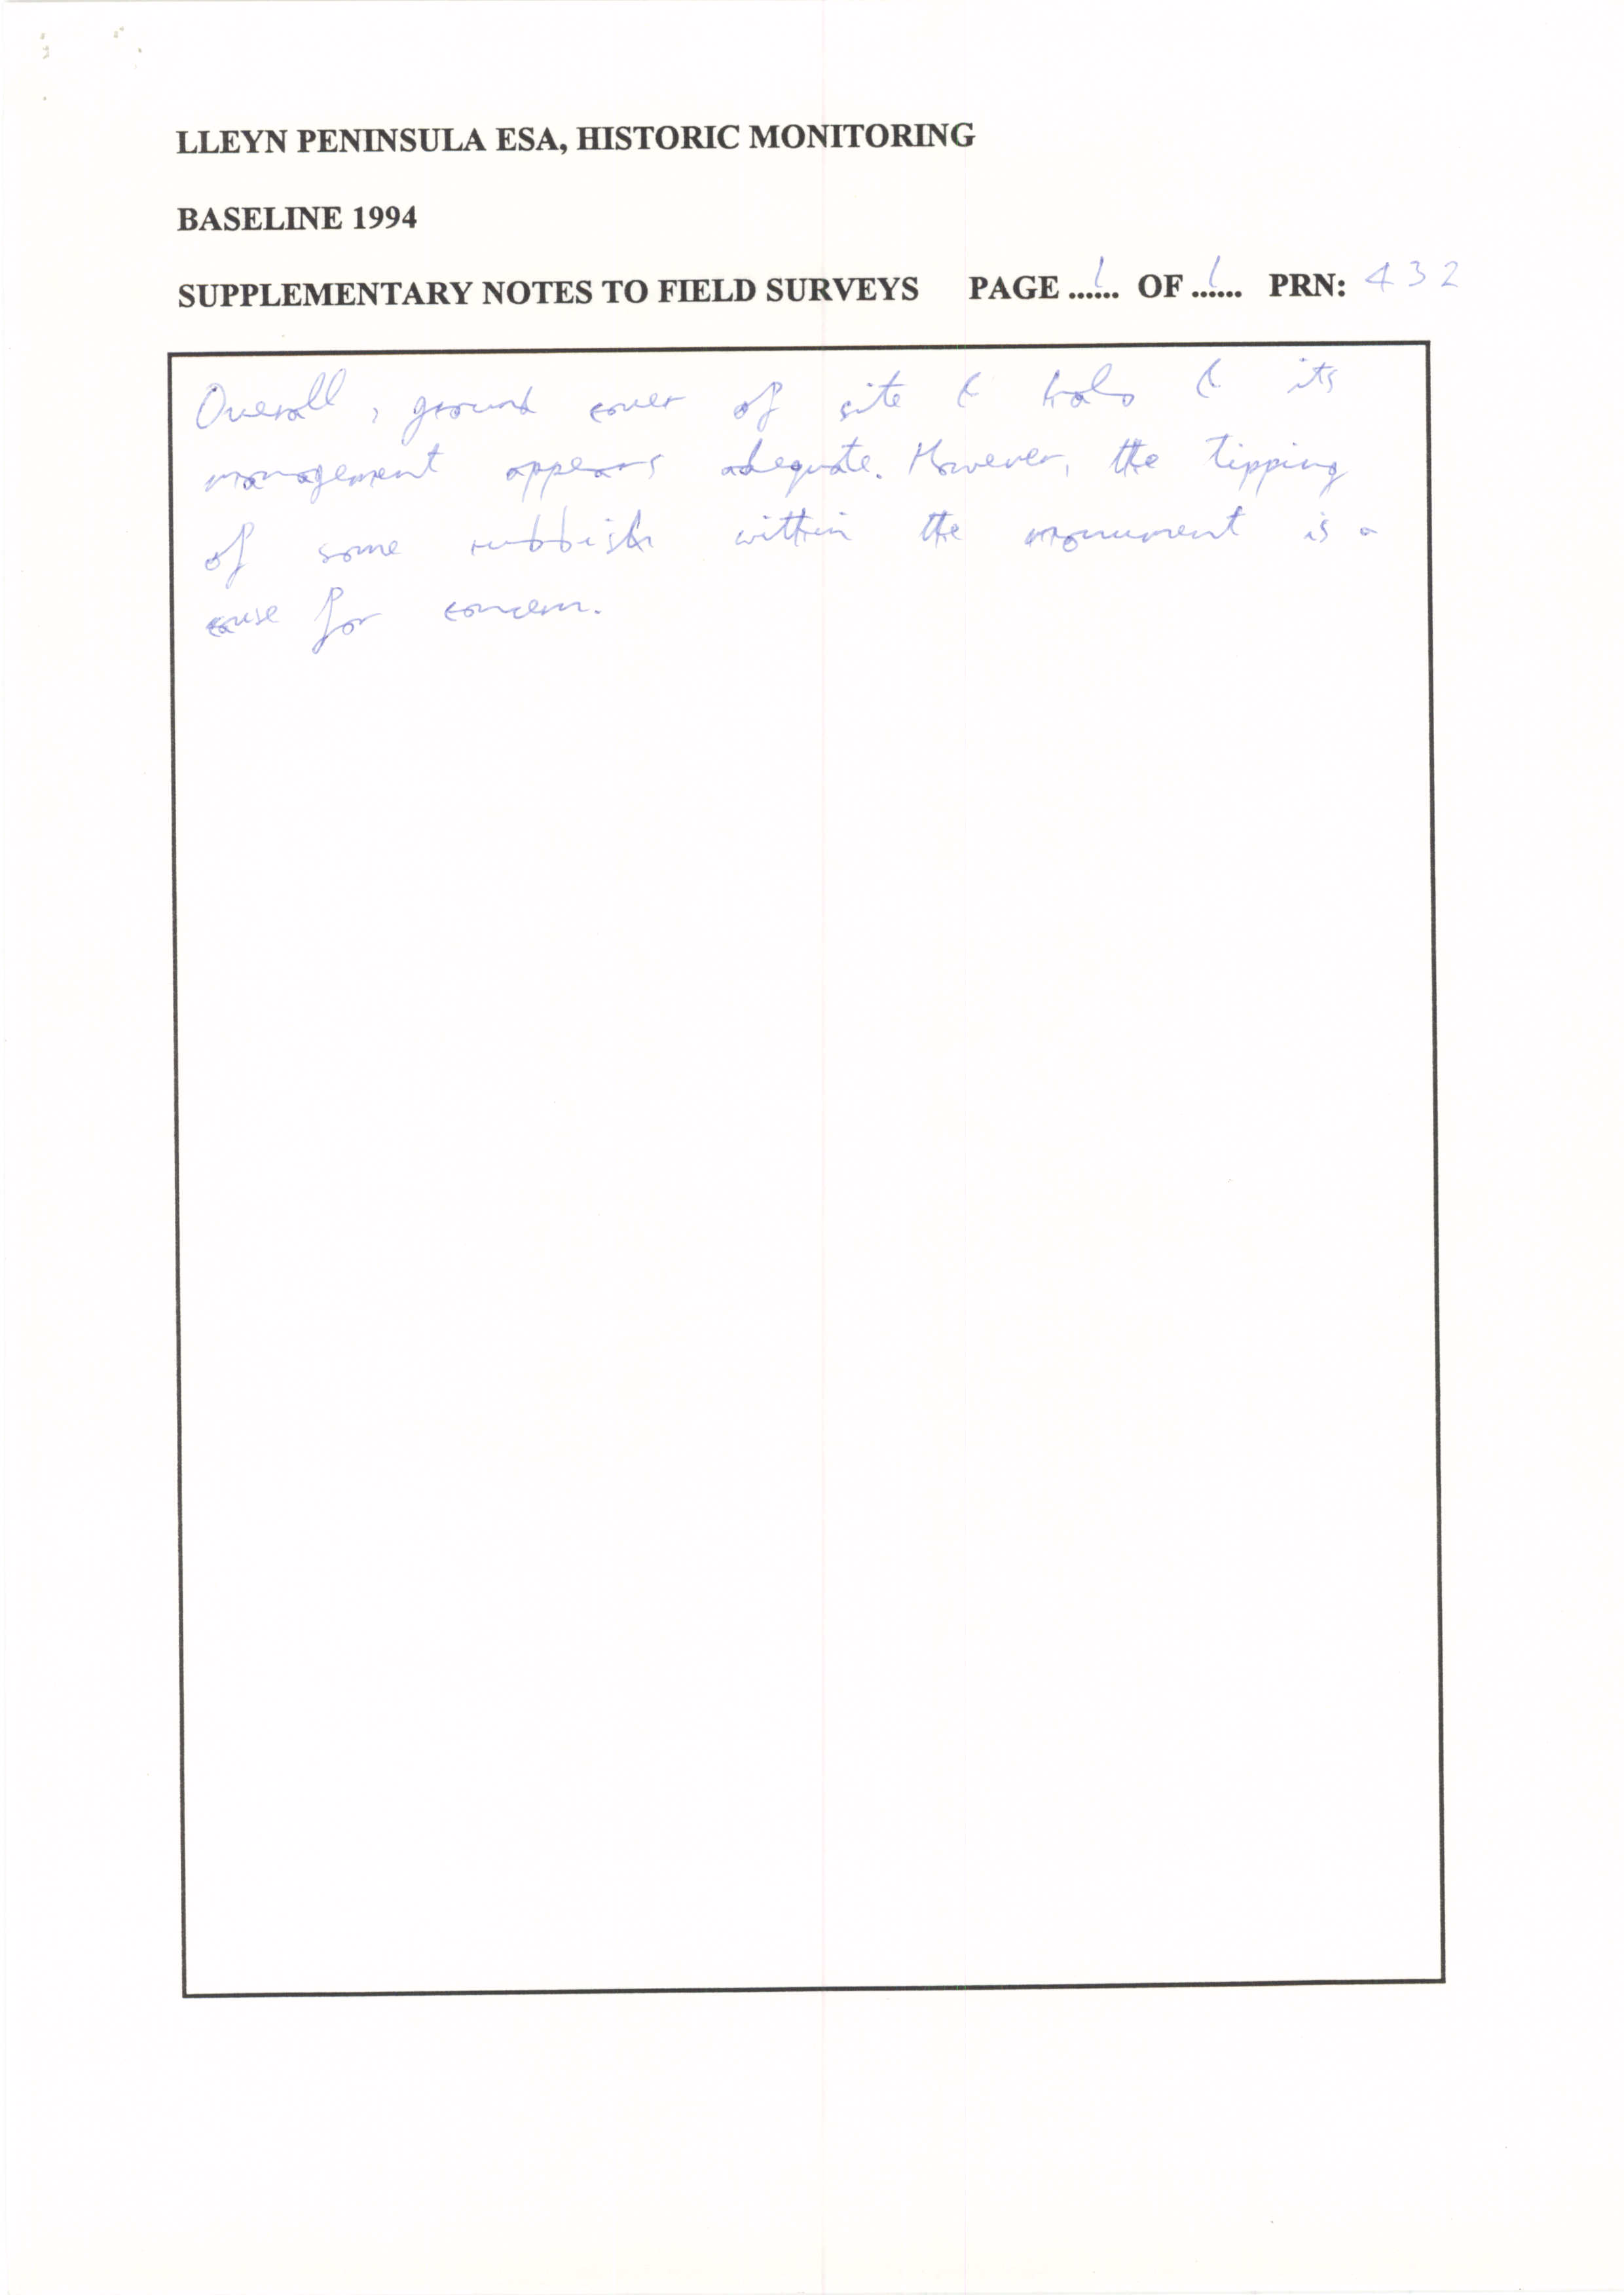 LLEYN PENINSULA ESA, HISTORIC MONITORING
BASELINE 1994
SUPPLEMENTARY NOTES TO FIELD SURVEYS PAGE ...1... OF ...1... PRN: 432
Overall, ground cover of site & halo & its
management appears adequate. However, the tipping
of some rubbish within the monument is a
cause for concern.